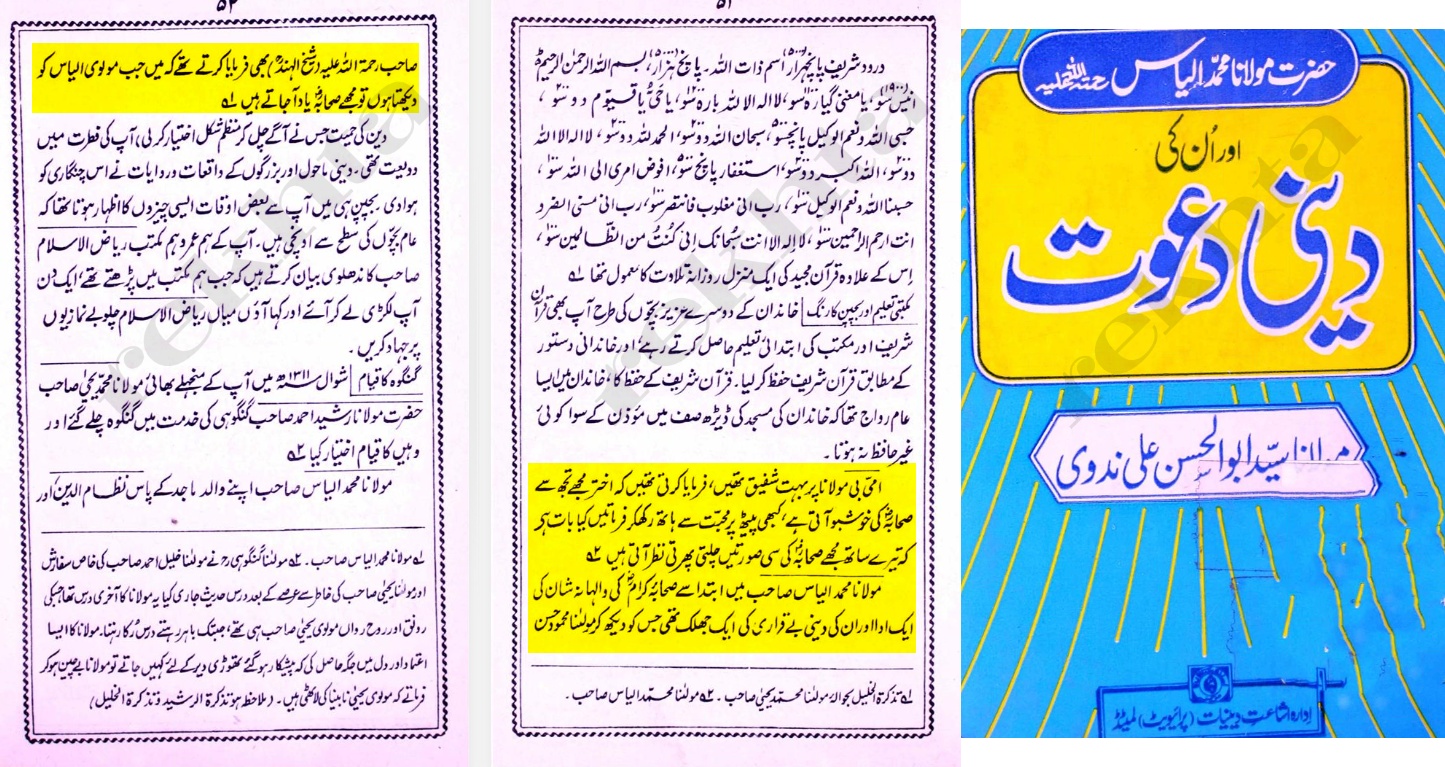 ۵۱
درود شریف پانچہزار، اسم ذات اللہ۔ پانچ ہزار، بسم اللہ الرحمٰن الرحیم
انیس سو (۱۹۰۰)، یا مغنی گیارہ سو، لا الہ الا اللہ بارہ سو، یا حیُّ یا قیوم دو سو،
حسبی اللہ ونعم الوکیل پانچسو، سبحان اللہ دو سو، الحمد للہ دو سو، لا الہ الا اللہ
دو سو، اللہ اکبر دو سو، استغفار پانچ سو، افوض امری الی اللہ سو،
حسبنا اللہ ونعم الوکیل سو، رب انی مغلوب فانتصر سو، رب انی مسنی الضر و
انت ارحم الراحمین سو، لا إلٰہ الا انت سبحانک إنی کُنتُ من الظالمین سو،
اِس کے علاوہ قرآن مجید کی ایک منزل روزانہ تلاوت کا معمول تھا ۱؎
مکتبی تعلیم اور بچپن کا رنگ خاندان کے دوسرے عزیز بچّوں کی طرح آپ بھی قرآن
شریف اور مکتب کی ابتدائی تعلیم حاصل کرتے رہے، اور خاندانی دستور
کے مطابق قرآن شریف حفظ کر لیا۔ قرآن شریف کے حفظ کا خاندان میں ایسا
عام رواج تھا کہ خاندان کی مسجد کی ڈیڑھ صف میں مؤذن کے سوا کوئی
غیر حافظ نہ ہوتا۔
امی بی مولانا پر بہت شفیق تھیں، فرمایا کرتی تھیں کہ اختر مجھے تجھ سے
صحابہؓ کی خوشبو آتی ہے، کبھی پیٹھ پر محبت سے ہاتھ رکھ کر فرماتیں کیا بات ہے
کہ تیرے ساتھ مجھے صحابہؓ کی سی صورتیں چلتی پھرتی نظر آتی ہیں ۲؎
مولانا محمد الیاس صاحب میں ابتدا سے صحابۂ کرامؓ کی والہانہ شان کی
ایک ادا اور ان کی دینی بے قراری کی ایک جھلک تھی جس کو دیکھ کر مولٰنا محمود حسن
۱؎ تذکرۃ الخلیل بحوالہ مولٰنا محمد یحییٰ صاحب۔ ۲؎ مولٰنا محمد الیاس صاحب۔
۵۲
صاحب رحمۃ اللہ علیہ (شیخ الہندؒ) بھی فرمایا کرتے تھے کہ میں جب مولوی الیاس کو
دیکھتا ہوں تو مجھے صحابہؓ یاد آجاتے ہیں ۱؎
دین کی حمیت (جس نے آگے چل کر منظم شکل اختیار کر لی) آپ کی فطرت میں
ودیعت تھی۔ دینی ماحول اور بزرگوں کے واقعات و روایات نے اس چنگاری کو
ہوا دی۔ بچپن ہی میں آپ سے بعض اوقات ایسی چیزوں کا اظہار ہوتا تھا کہ
عام بچّوں کی سطح سے اونچی ہیں۔ آپ کے ہم عمر و ہم مکتب ریاض الاسلام
صاحب کاندھلوی بیان کرتے ہیں کہ جب ہم مکتب میں پڑھتے تھے، ایک دن
آپ لکڑی لے کر آئے اور کہا آؤ میاں ریاض الاسلام چلو بے نمازیوں
پر جہاد کریں۔
گنگوہ کا قیام شوال ۱۳۱۱ھ میں آپ کے منجھلے بھائی مولانا محمد یحییٰ صاحب
حضرت مولانا رشید احمد صاحب گنگوہی کی خدمت میں گنگوہ چلے گئے اور
وہیں کا قیام اختیار کیا ۲؎
مولانا محمد الیاس صاحب اپنے والد ماجد کے پاس نظام الدین اور
۱؎ مولانا محمد الیاس صاحب۔ ۲؎ مولٰنا گنگوہی رح نے مولٰنا خلیل احمد صاحب کی خاص سفارش
اور مولٰنا یحییٰ صاحب کی خاطر سے عرصے کے بعد درس حدیث جاری کیا یہ مولانا کا آخری درس تھا جسکی
رونق اور روح رواں مولوی یحییٰ صاحب ہی تھے، جبتک باہر رہتے درس رُکا رہتا۔ مولانا کا ایسا
اعتماد اور دل میں جگہ حاصل کی کہ پیشکار ہو گئے تھوڑی دیر کے لئے کہیں جاتے تو مولانا بے چین ہو کر
فرماتے کہ مولوی یحییٰ نابینا کی لاٹھی ہیں۔ (ملاحظہ ہو تذکرۃ الرشید و تذکرۃ الخلیل)
حضرت مولانا محمد الیاس رحمۃ اللہ علیہ
اور اُن کی
دینی دعوت
مولانا سیّد ابوالحسن علی ندوی
ادارہ اشاعت دینیات (پرائیویٹ) لمیٹڈ
rekhta
rekhta
rekhta